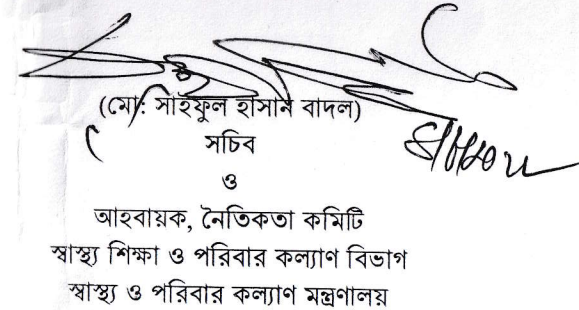 (মো: সাইফুল হাসান বাদল)
সচিব
ও
আহবায়ক, নৈতিকতা কমিটি
স্বাস্থ্য শিক্ষা ও পরিবার কল্যাণ বিভাগ
স্বাস্থ্য ও পরিবার কল্যাণ মন্ত্রণালয়